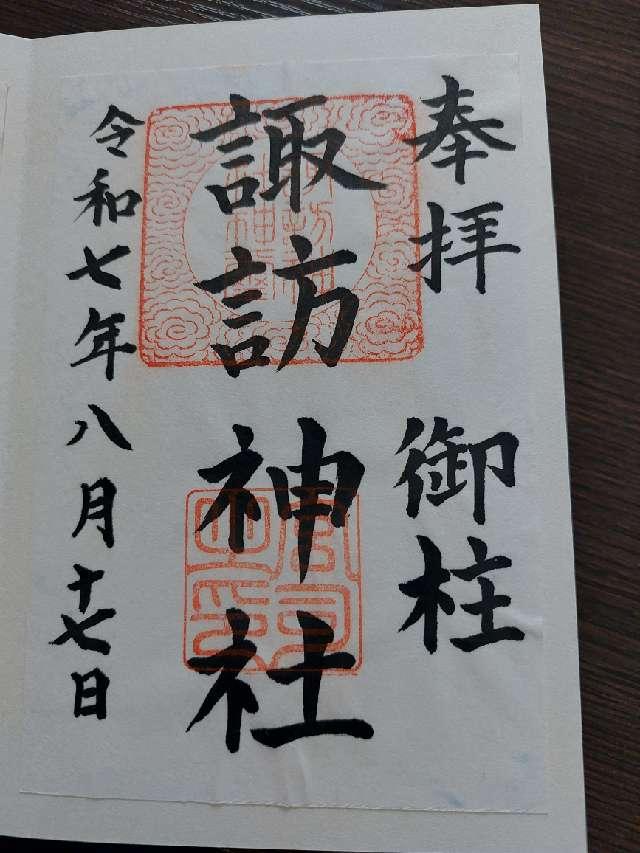 奉拝
御柱
諏訪神社
令和七年八月十七日